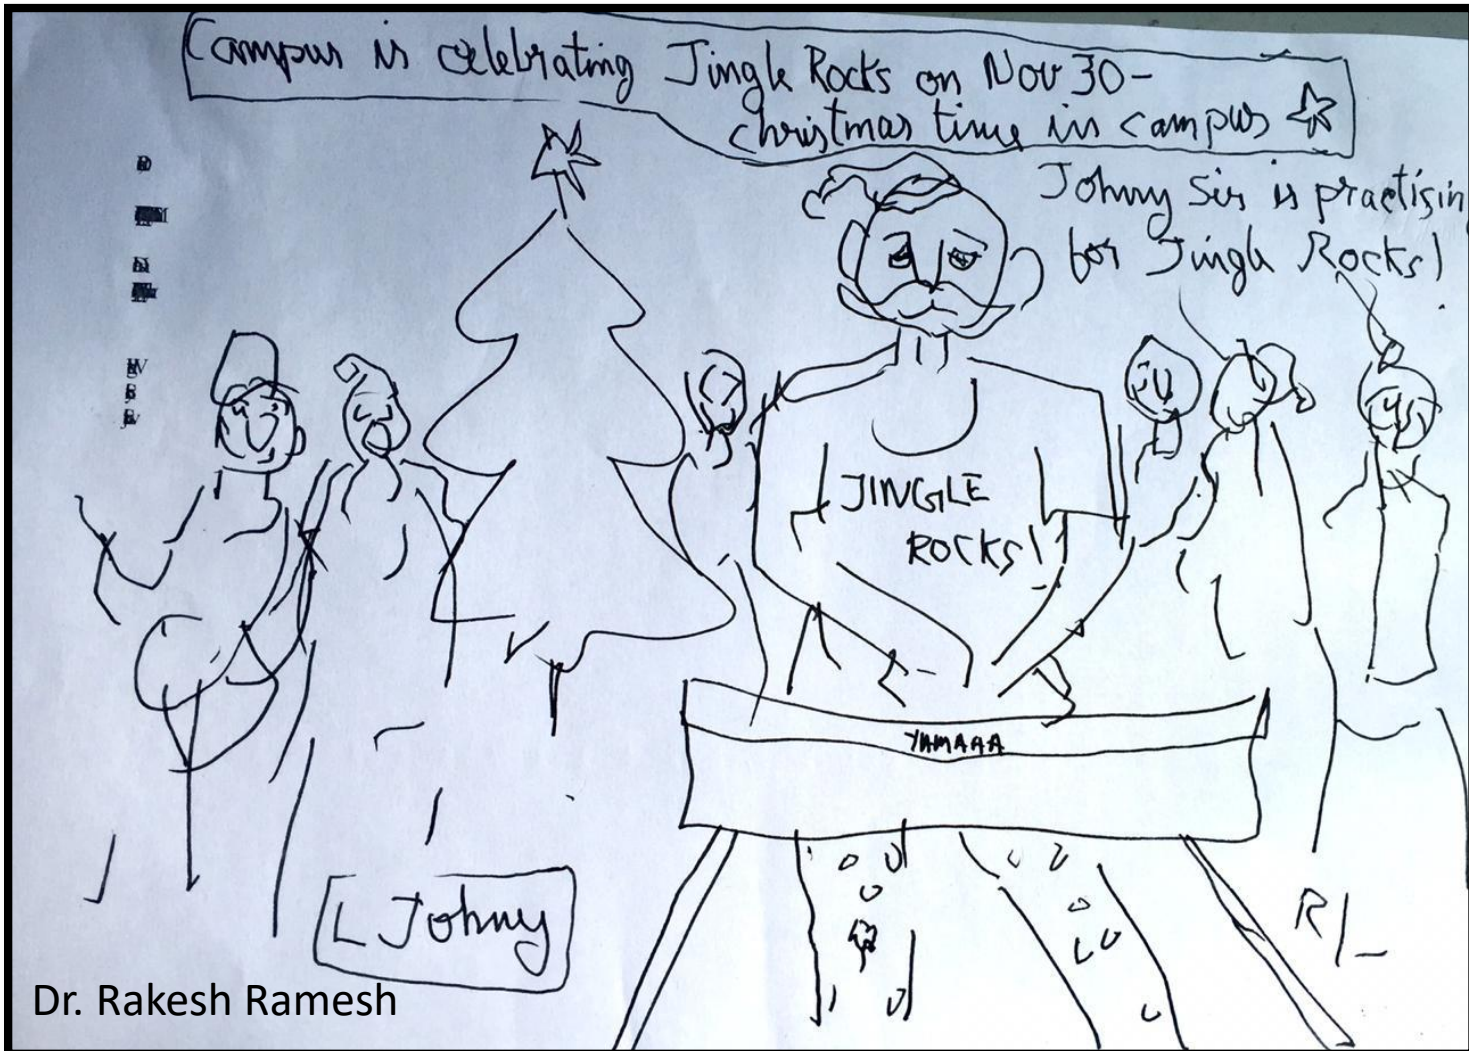 Campus is celebrating Jingle Rocks on Nov 30-
christmas time in campus
Johny Sir is practisin
for Jingle Rocks!
JINGLE
ROCKS!
YAMAAA
L Johny
R/-
Dr. Rakesh Ramesh